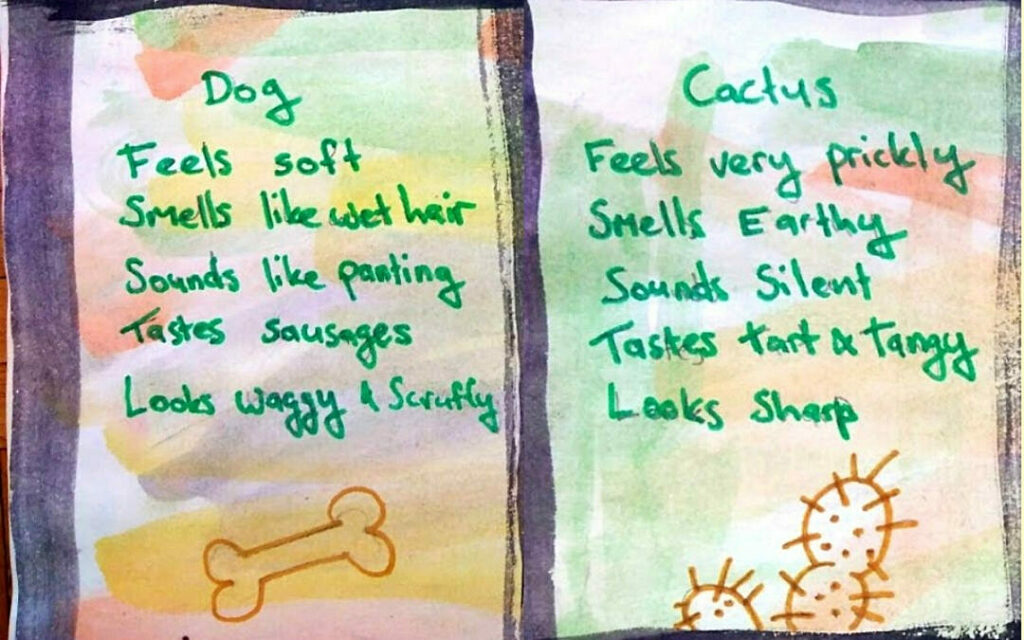 Dog
Feels soft
Smells like wet hair
Sounds like panting
Tastes sausages
Looks waggy & Scruffy
Cactus
Feels very prickly
Smells Earthy
Sounds Silent
Tastes tart & Tangy
Looks Sharp